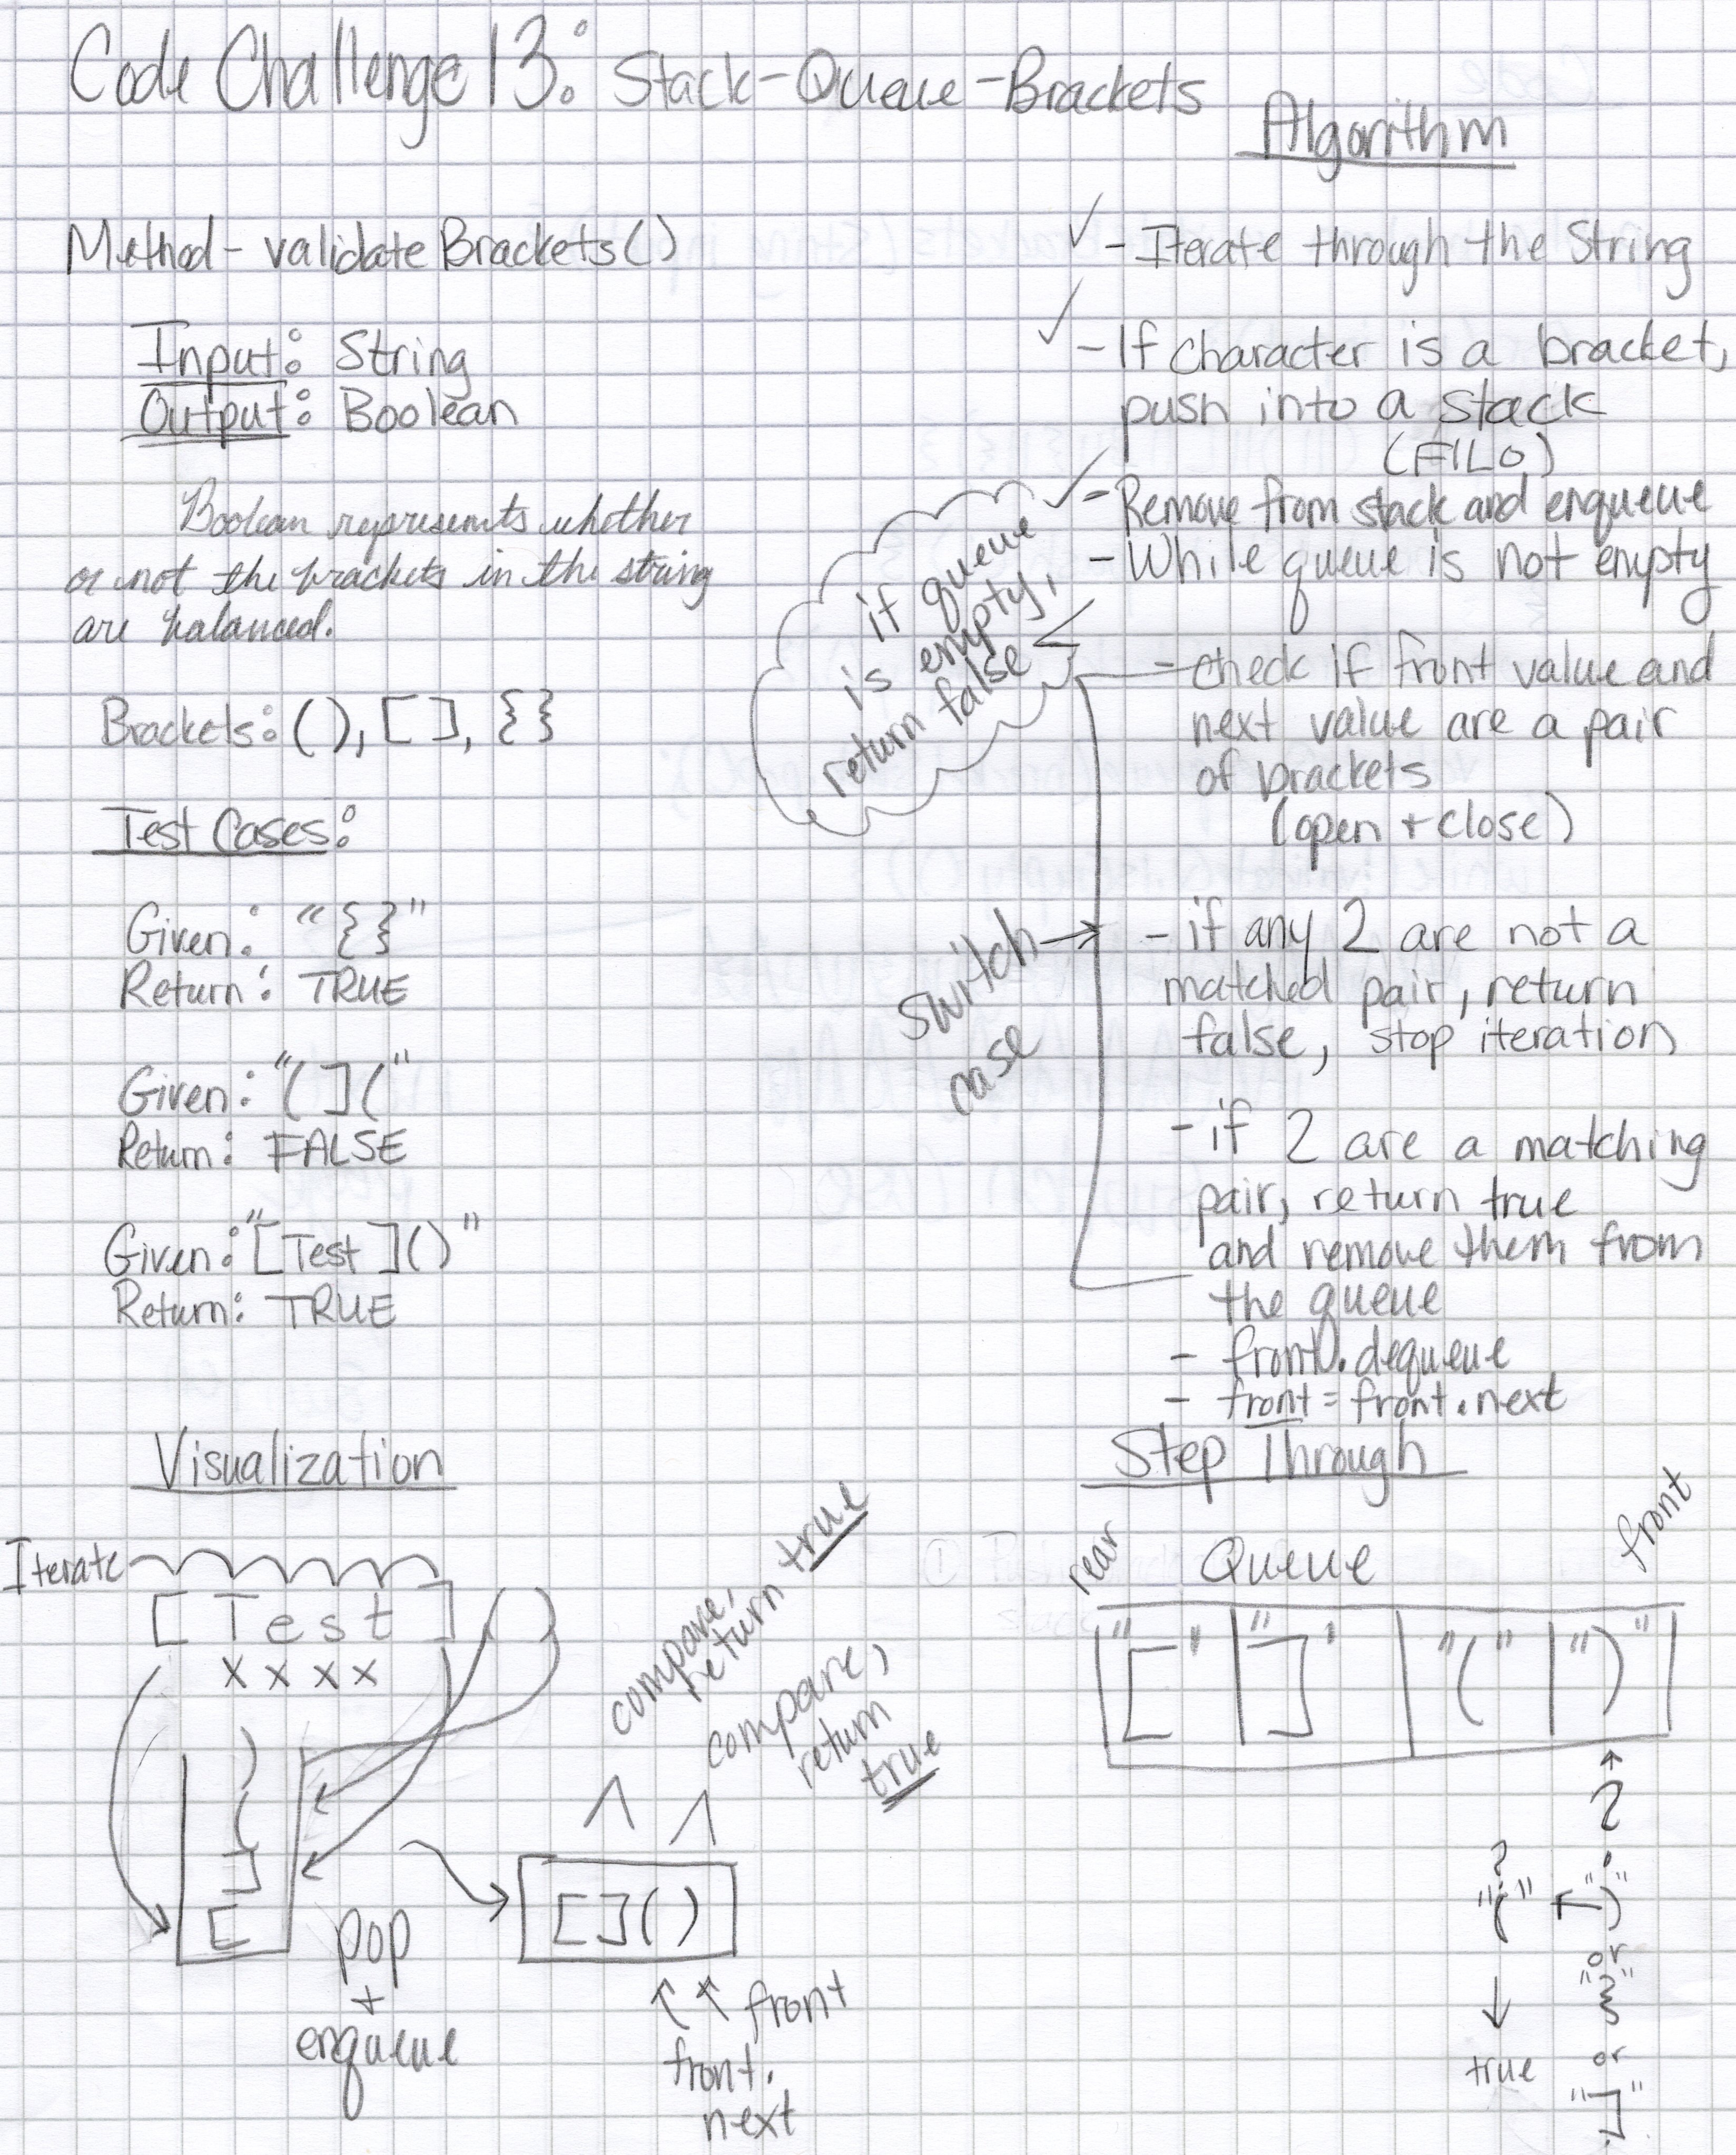 Code Challenge 13: Stack-Queue-Brackets
Method - validateBrackets()
Input: String
Output: Boolean
Boolean represents whether
or not the brackets in the string
are balanced.
Brackets: (), [], {}
Test Cases:
Given: "{}"
Return: TRUE
Given: "(]("
Return: FALSE
Given: "[Test]()"
Return: TRUE
Algorithm
✓ - Iterate through the String
✓ - If character is a bracket,
push into a stack
(FILO)
✓ - Remove from stack and enqueue
- While queue is not empty
if queue
is empty,
return false
- check if front value and
next value are a pair
of brackets
(open + close)
switch
case
- if any 2 are not a
matched pair, return
false, stop iteration
- if 2 are a matching
pair, return true
and remove them from
the queue
- front.dequeue
- front = front.next
Visualization
Iterate
[Test]()
x x x x
)
(
]
[
pop
+
enqueue
[]()
compare,
return true
compare,
return
true
front
front.
next
Step Through
rear Queue front
"[" "]" "(" ")"
?
"(" ")"
or
"}"
or
"]"
?
true